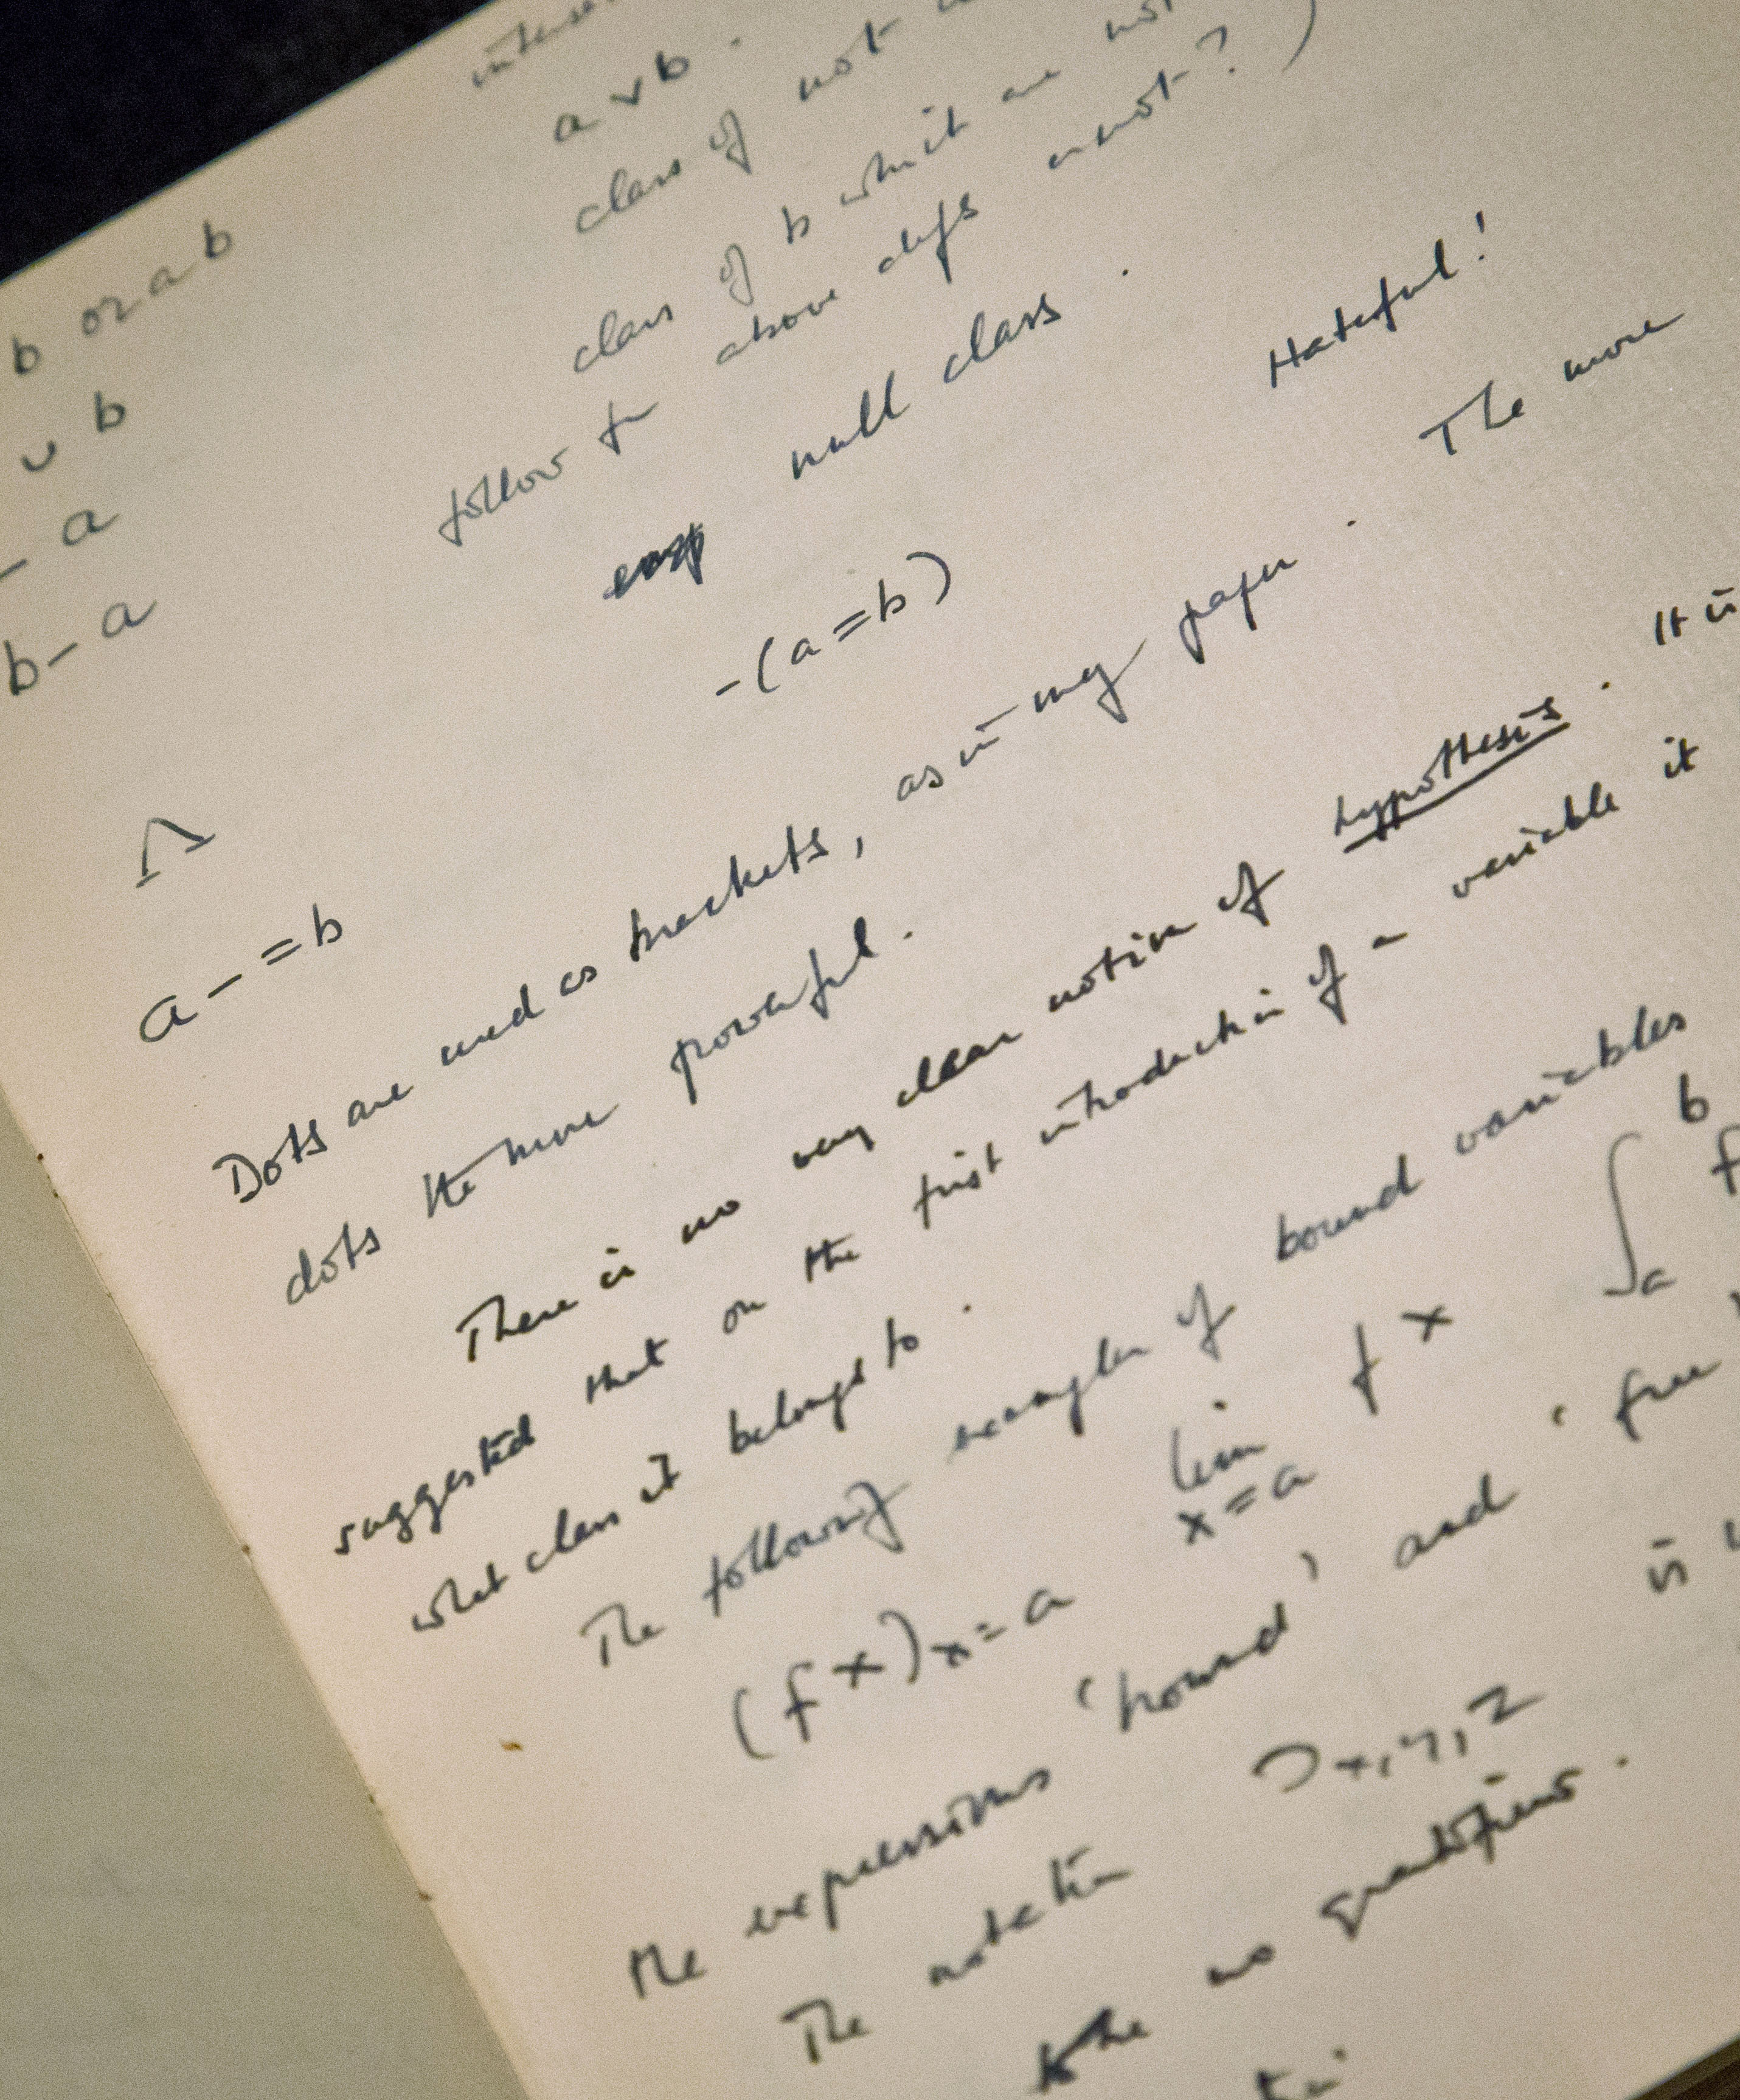 a ∨ b .
b or a b class of not
∪ b class of b which are not
- a follow from above defs or not? )
b - a
Λ null class .
a - = b - (a = b) Hateful!
Dots are used as brackets, as in my paper . The more
dots the more powerful .
There is no very clear notion of hypothesis . It is
suggested that on the first introduction of a variable it
what class it belongs to .
The following examples of bound variables
(f x) x = a lim x = a f x ∫ a b f
the expressions 'bound' and 'free
The notation ⊃ x, y, z is
to the no quantifiers .